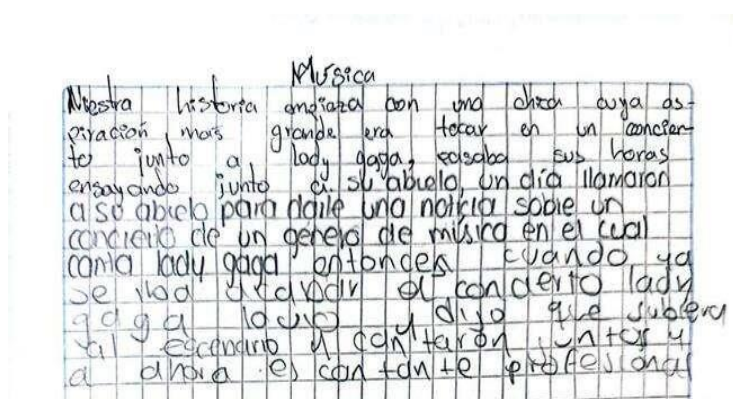 Música
Nuestra historia empieza con una chica cuya as-
piración mas grande era tocar en un concier-
to junto a lady gaga, pasaba sus horas
ensayando junto a su abuelo, un día llamaron
a su abuelo para darle una noticia sobre un
concierto de un genero de música en el cual
canta lady gaga entonces cuando ya
se iba a acabar el concierto lady
gaga la vio y dijo que subiera
al escenario y cantaron juntas y
a ahora es cantante profesional